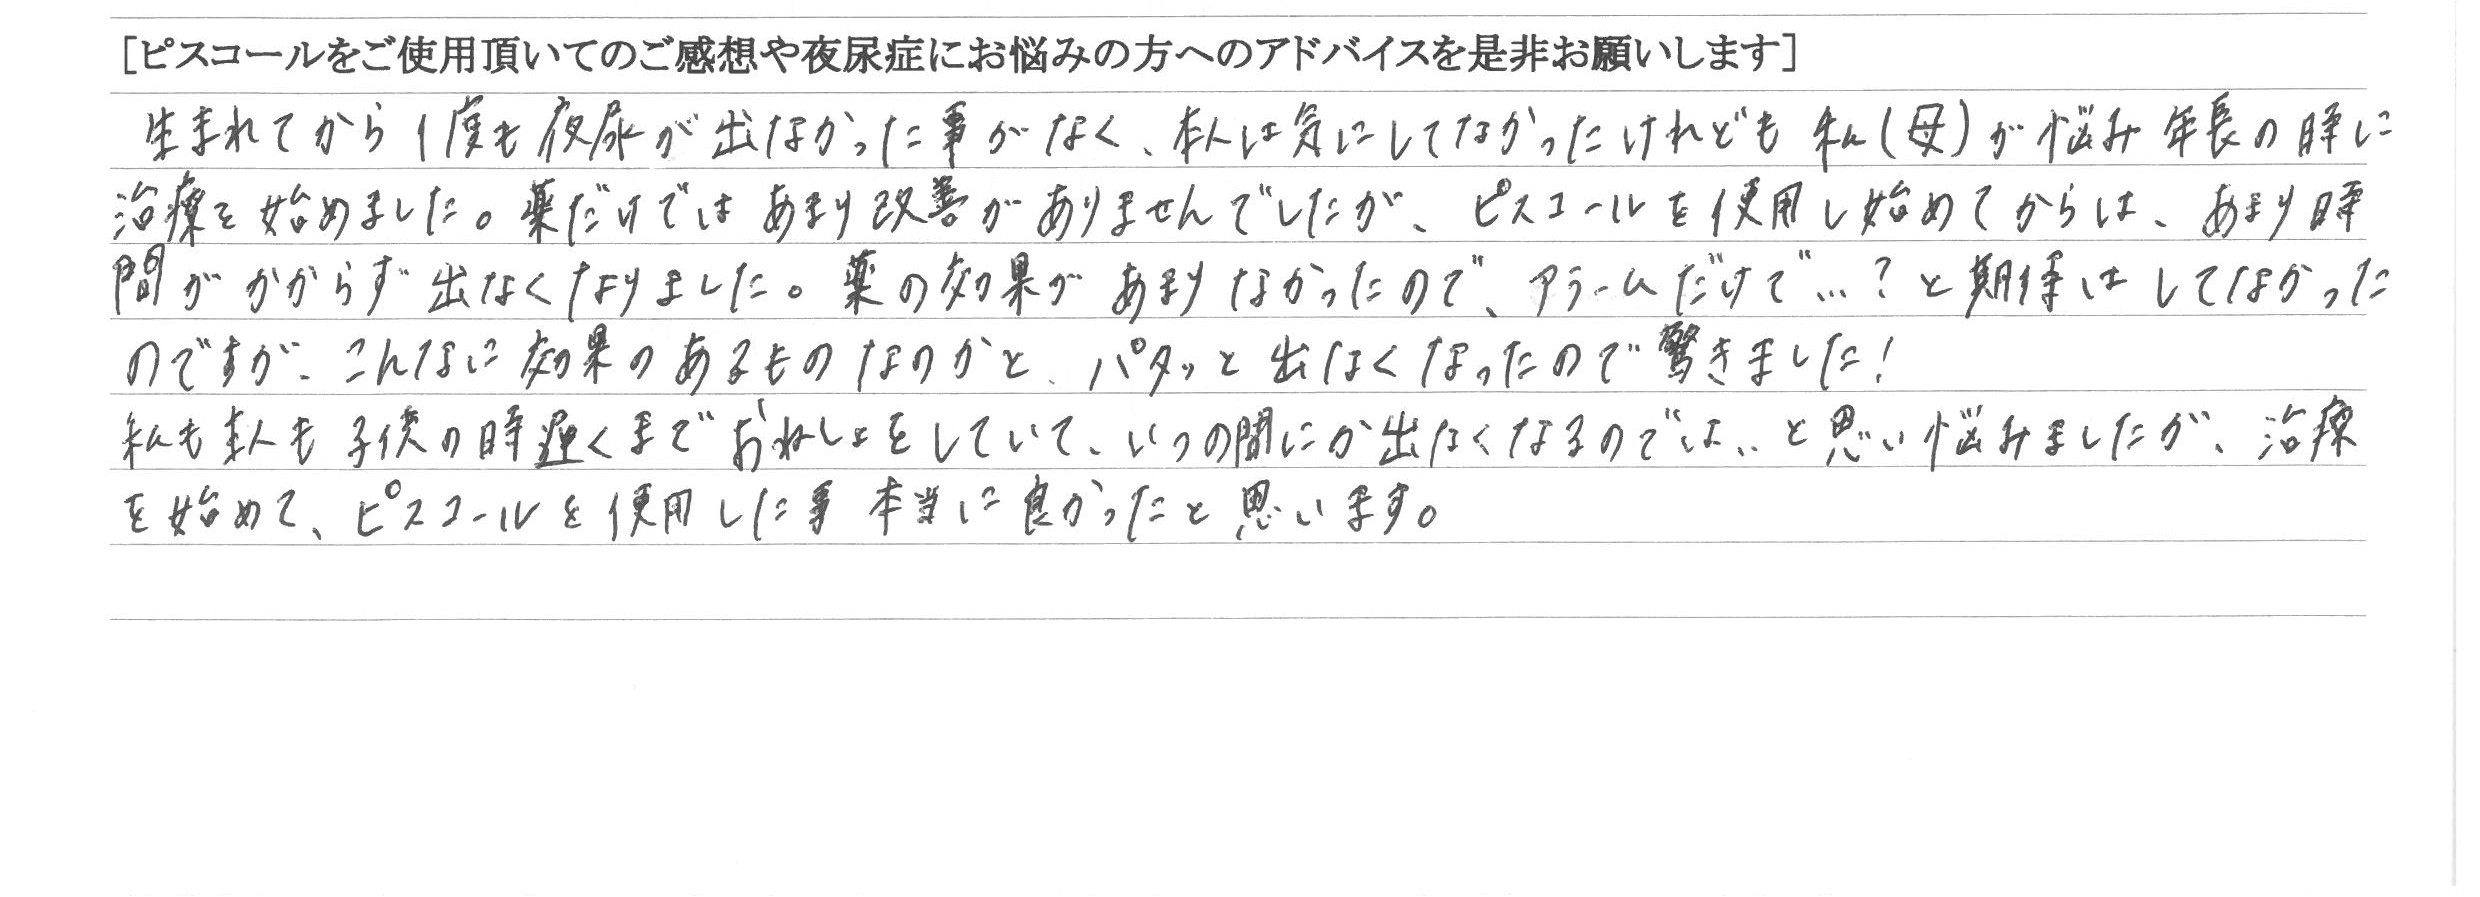 [ピスコールをご使用頂いてのご感想や夜尿症にお悩みの方へのアドバイスを是非お願いします]
生まれてから1度も夜尿が出なかった事がなく、本人は気にしてなかったけれども私(母)が悩み年長の時に
治療を始めました。薬だけではあまり改善がありませんでしたが、ピスコールを使用し始めてからは、あまり時
間がかからず出なくなりました。薬の効果があまりなかったので、アラームだけで…?と期待はしてなかった
のですが、こんなに効果のあるものなのかと、パタッと出なくなったので驚きました!
私も主人も子供の時遅くまでおねしょをしていて、いつの間にか出なくなるのでは、、と思い悩みましたが、治療
を始めて、ピスコールを使用した事本当に良かったと思います。